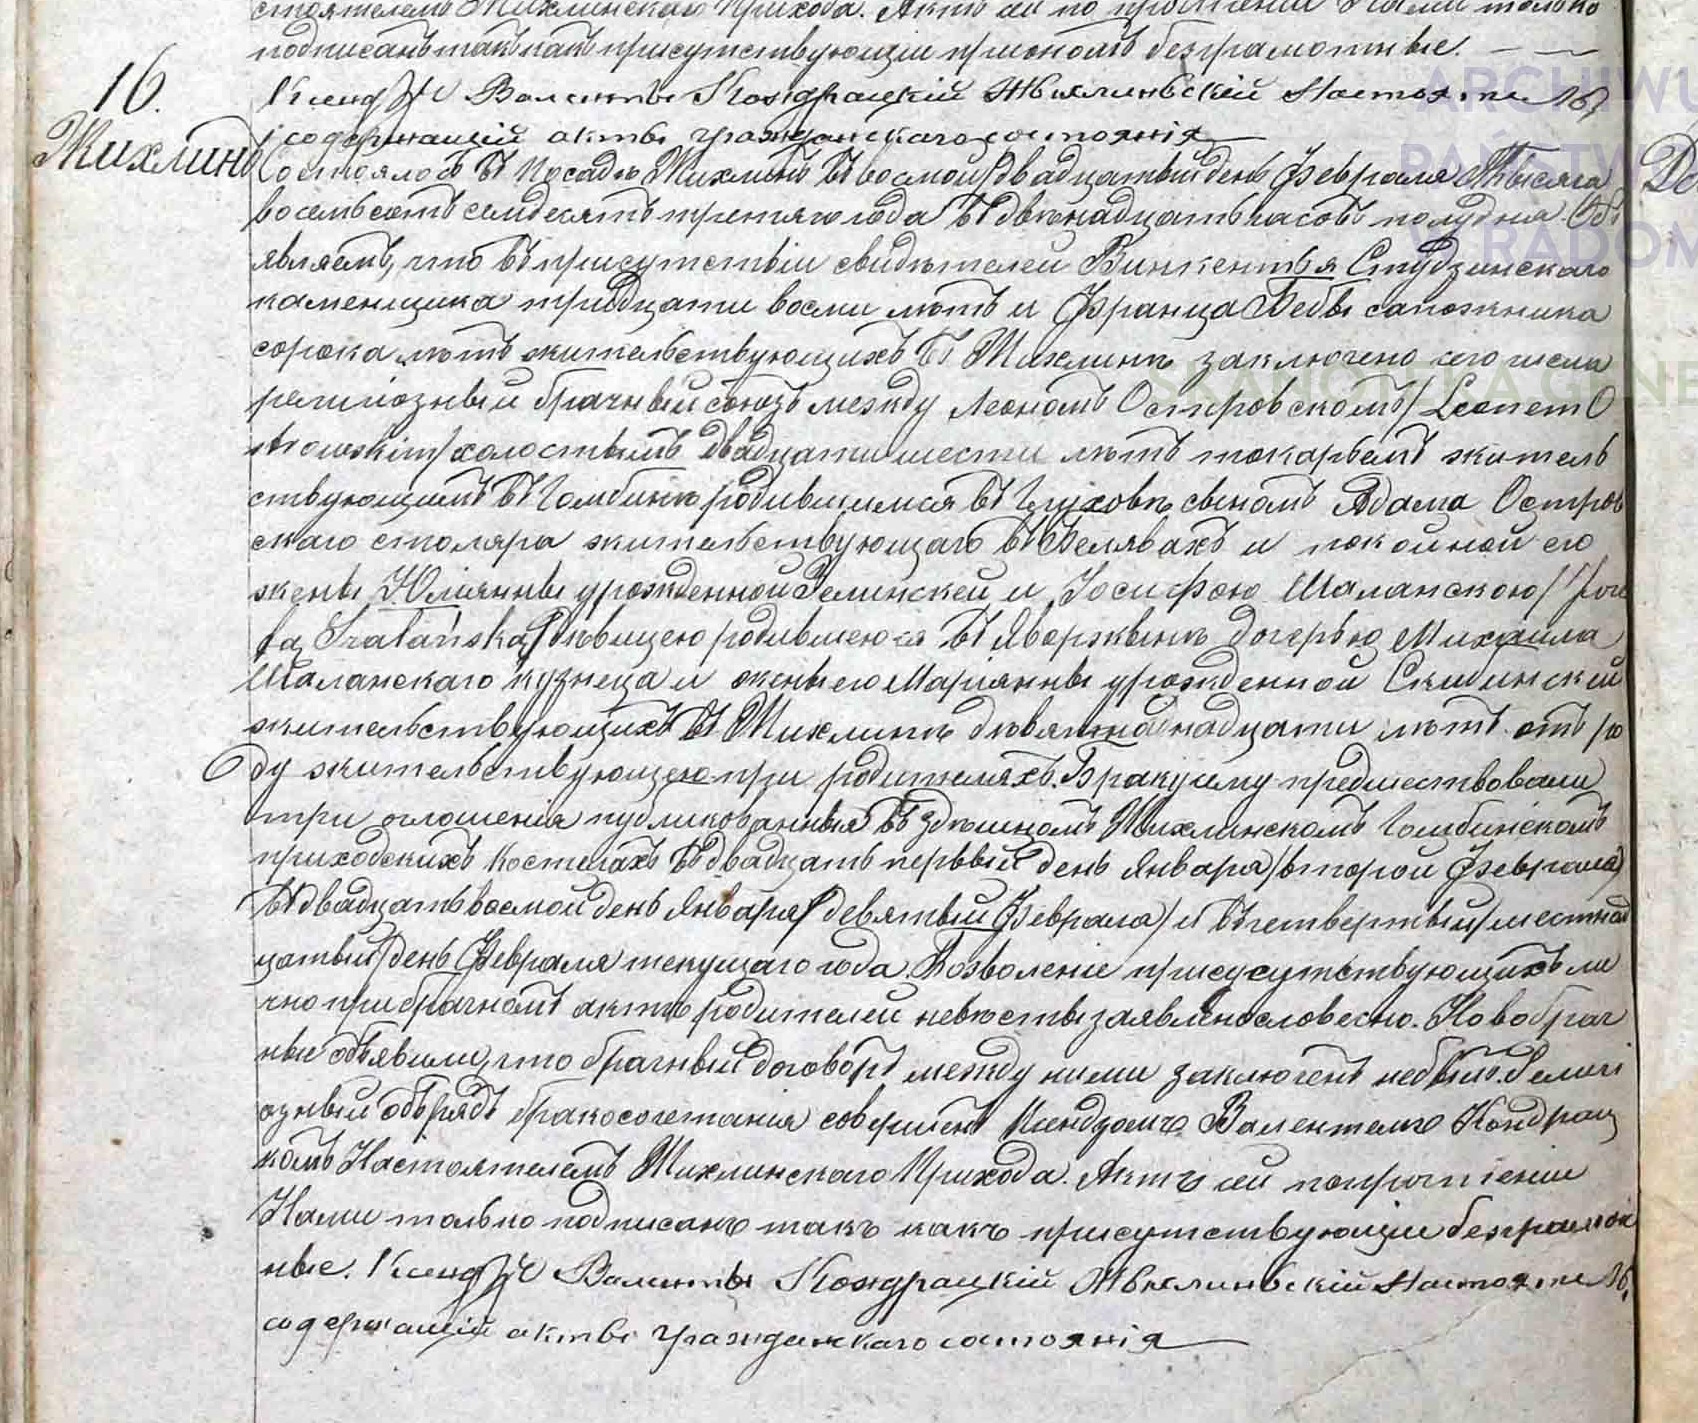 стоятелемъ Жихлинскаго Прихода. Актъ сей по прочтеніи Нами только
подписанъ такъ какъ присутствующіи при ономъ безграмотные. — —
Ксендзъ Валенты Кондрацкій Жыхлиньскій Настоятель
содержащій акты гражданскаго состоянія
16.
Жихлинъ
Состоялось въ Посадѣ Жихлинѣ въ восмой/двадцатый день Февраля Тысяча
восемьсотъ семдесятъ третяго года въ двѣнадцать часовъ полудня. Объ
являемъ, что въ присутствіи свидѣтелей Винкентья Студзинскаго
каменщика тридцати восми лѣтъ и Франца Бебы сапожника
сорока лѣтъ жительствующихъ въ Жихлинѣ заключено сего числа
религіозный брачный союзъ между Леономъ Островскомъ/Leonem O
strowskim/холостымъ двадцати шести лѣтъ токарьемъ житель
ствующимъ въ Гомбинѣ родившимся въ сыномъ Адама Остров
скаго столяра жительствующаго въ Белявахъ и покойной его
жены Юліянны урожденной и Іосифою Шаланскою/Joze
fą Szalańską/дѣвицею родившеюся въ дочерью Михаила
Шаланскаго кузнеца и жены его Маріянны урожденной
жительствующихъ въ Жихлинѣ девятнадцати лѣтъ отъ ро
ду жительствующею при родителяхъ. Браку сему предшествовали
три оглошенія публикованныя въ здѣшномъ Жихлинскомъ Гомбинскомъ
приходскихъ костелахъ въ двадцать первый день Января/второй Февраля/
въ двадцать восмой день Января/девятый Февраля/и въ четвертый/шестнад
цатый/день Февраля текущаго года. Позволеніе присусутствующихъ ли
чно при брачномъ актѣ родителей невѣсты заявлено словесно. Новобрач
ные объявили, что брачный договоръ между ними заключенъ небылъ. Религі
озный обрядъ бракосочетанія совершенъ Ксендзомъ Валентемъ Кондрац
комъ Настоятелемъ Жихлинскаго Прихода. Актъ сей по прочтеніи
Нами только подписанъ такъ какъ присутствующіи безграмот
ные. Ксендзъ Валенты Кондрацкій Жыхлиньскій Настоятель
содержащій акты гражданскаго состоянія